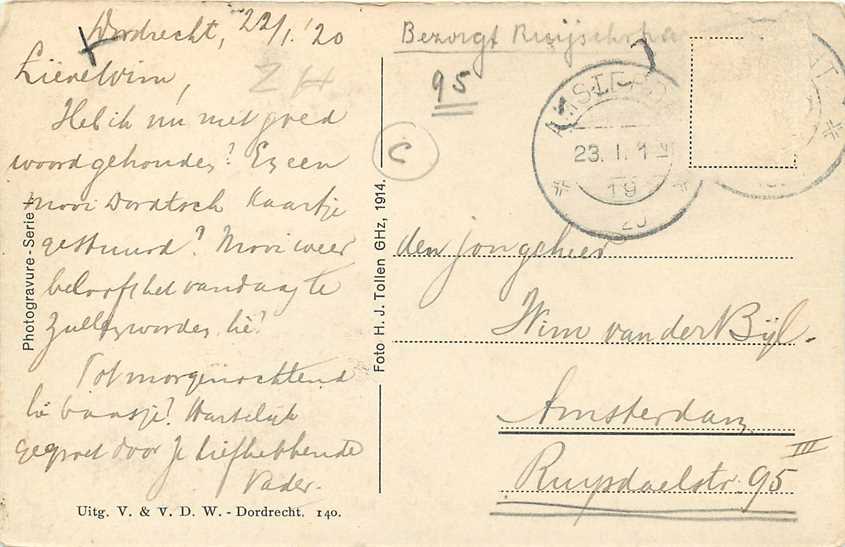 Dordrecht, 22/1 '20
Lieve Wim,
ZH
Heb ik nu niet goed
woord gehouden? En een
mooi Dordtsch kaartje
gestuurd? Mooi weer
belooft het vandaag te
zullen worden, hè?
Tot morgenochtend
hè baasje? Hartelijk
gegroet door je liefhebbende
Vader.
Uitg. V. & V. D. W. - Dordrecht. 140.
Photogravure - Serie
Foto H. J. Tollen GHz, 1914.
Bezorgt
95
C
AMSTERD
23. I. 1
19
20
den jongeheer
Wim van der Bÿl.
Amsterdam
Ruysdaelstr. 95 III